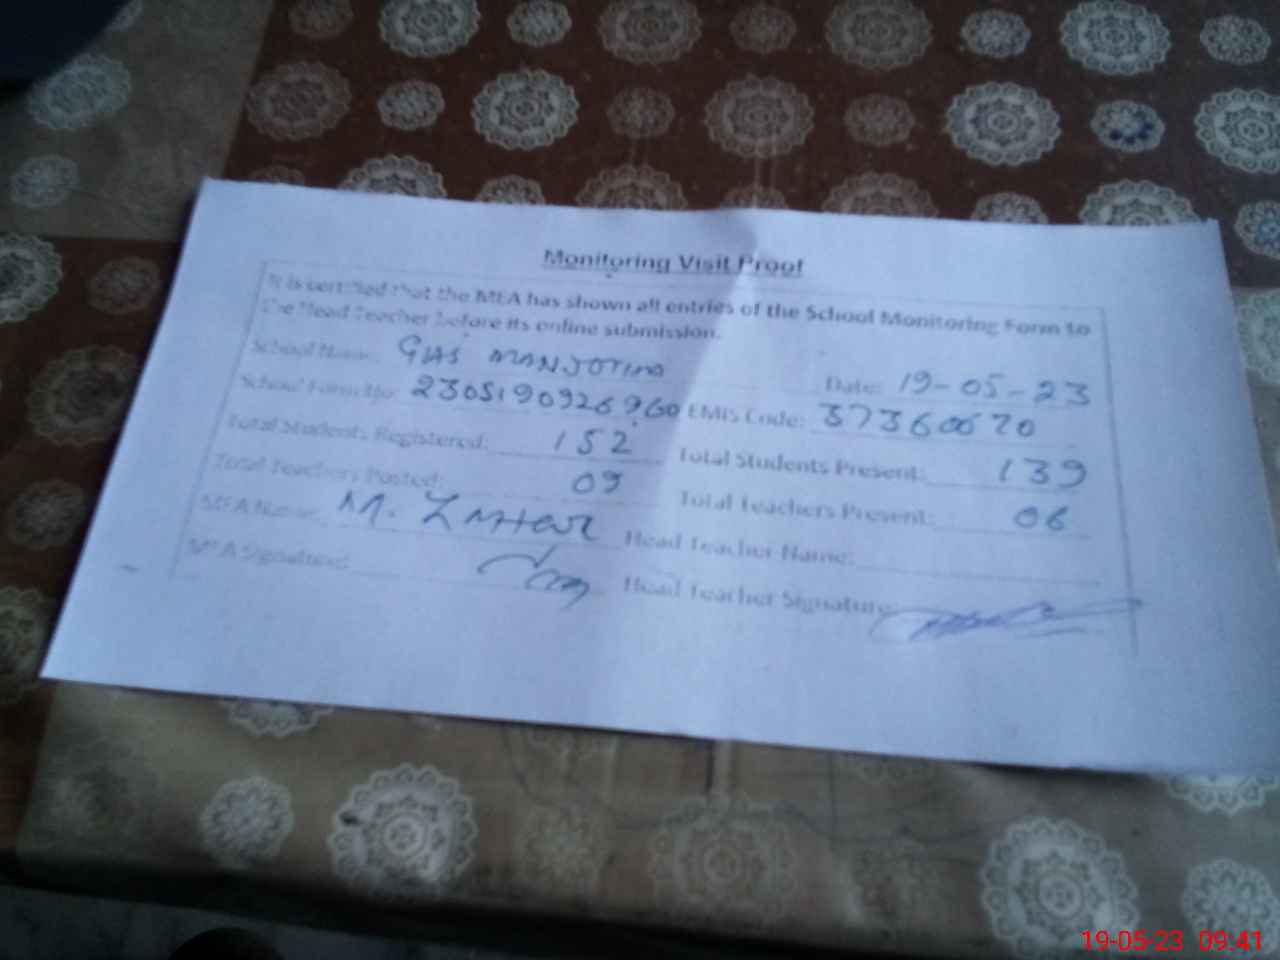 Monitoring Visit Proof
It is certified that the MEA has shown all entries of the School Monitoring Form to
the Head Teacher before its online submission.
School Name: Date: 19-05-23
School Form No: EMIS Code: 37360070
Total Students Registered: 152 Total Students Present: 139
Total Teachers Posted: 09 Total Teachers Present: 06
MEA Name: M. Head Teacher Name:
MEA Signature: Head Teacher Signature:
19-05-23 09:41